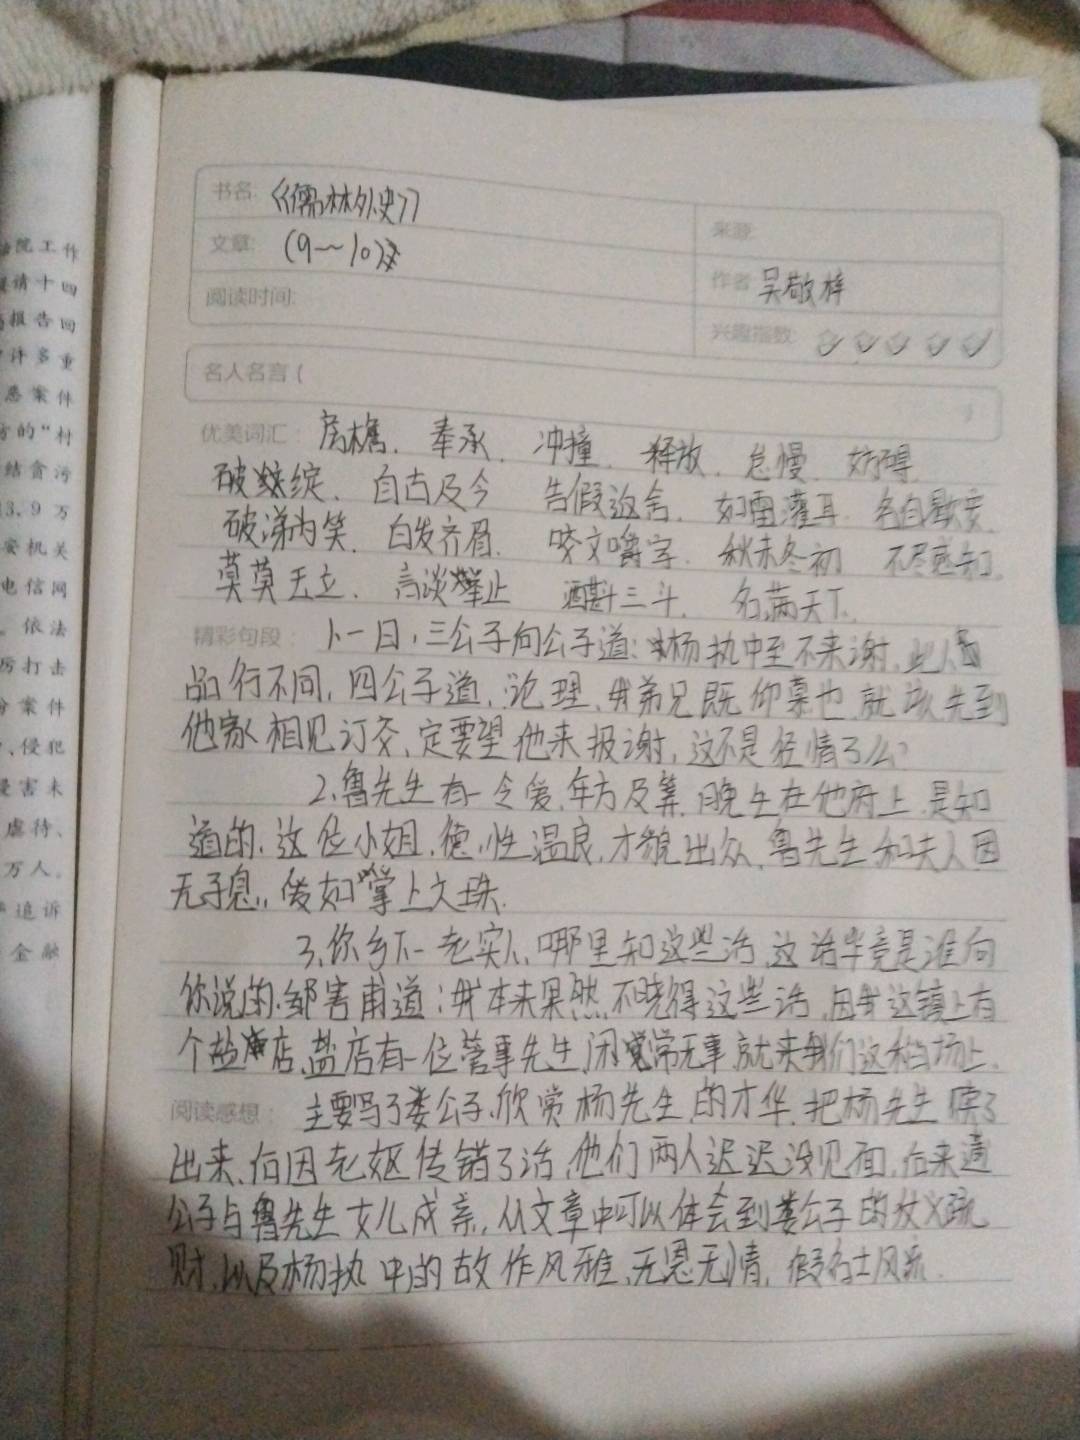 治院工作
请十四
报告回
中许多重
恶案件
方的“村
结贪污
13.9万
安机关
电信网
。依法
厉打击
分案件
、侵犯
侵害未
虐待、
万人。
追诉
金融
书名: 《儒林外史》
来源:
文章: (9~10)
作者 吴敬梓
阅读时间:
兴趣指数:
名人名言(
优美词汇: 奉承、冲撞、释放、怠慢、妨碍、
破绽、自古及今 告假返舍、如雷灌耳、
破涕为笑、白发齐眉、咬文嚼字、秋末冬初 不尽感知、
莫莫无立、高谈举止 酒斟三斗、名满天下、
精彩句段: 1.一日,三公子向公子道:杨执中至不来谢,此人
品行不同,四公子道,论理,我弟兄既仰慕他,就该先到
他家相见订交,定要望他来报谢,这不是俗情了么?
2.鲁先生有一令爱,年方及笄,晚生在他府上,是知
道的,这位小姐,德性温良,才貌出众,鲁先生和夫人因
无子息,爱如掌上文珠.
3.你乡下一老实人,哪里知这些话,这话毕竟是谁向
你说的,邹害甫道:我本来果然不晓得这些话,因我这镇上有
个盐店,盐店有一位管事先生,闲常无事就来我们这稻场上.
阅读感想: 主要写了娄公子欣赏杨先生的才华,把杨先生赎了
出来,后因老妪传错了话,他们两人迟迟没见面,后来蘧
公子与鲁先生女儿成亲,从文章中可以体会到娄公子的仗义疏
财,以及杨执中的故作风雅、无恩无情,假名士风采.